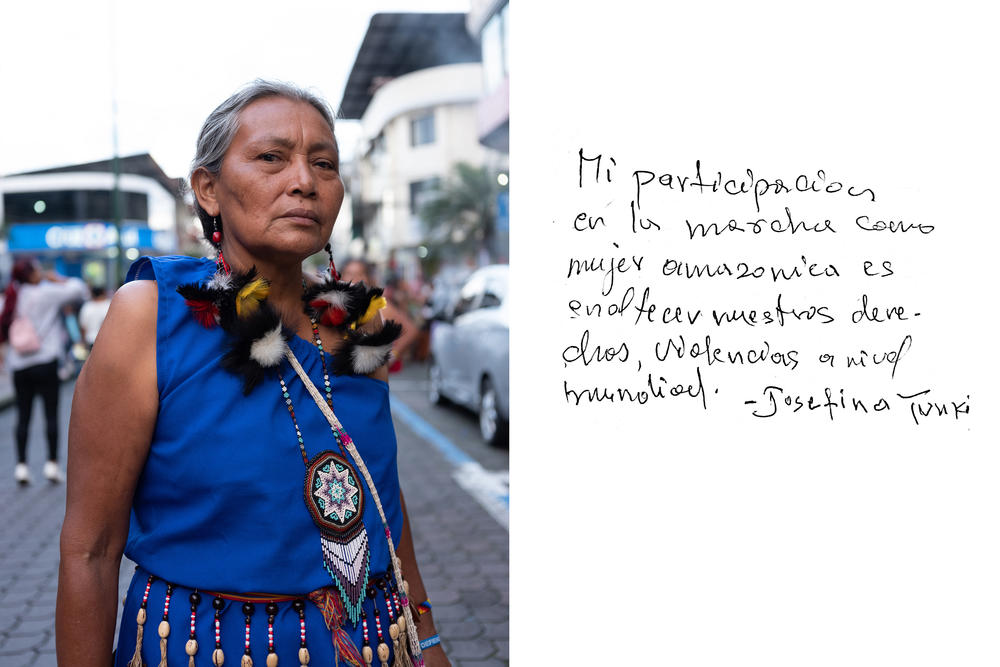 Mi participacion
en la marcha como
mujer amazonica es
enaltecer nuestros dere-
chos, violencias a nivel
mundial. -Josefina Tunki